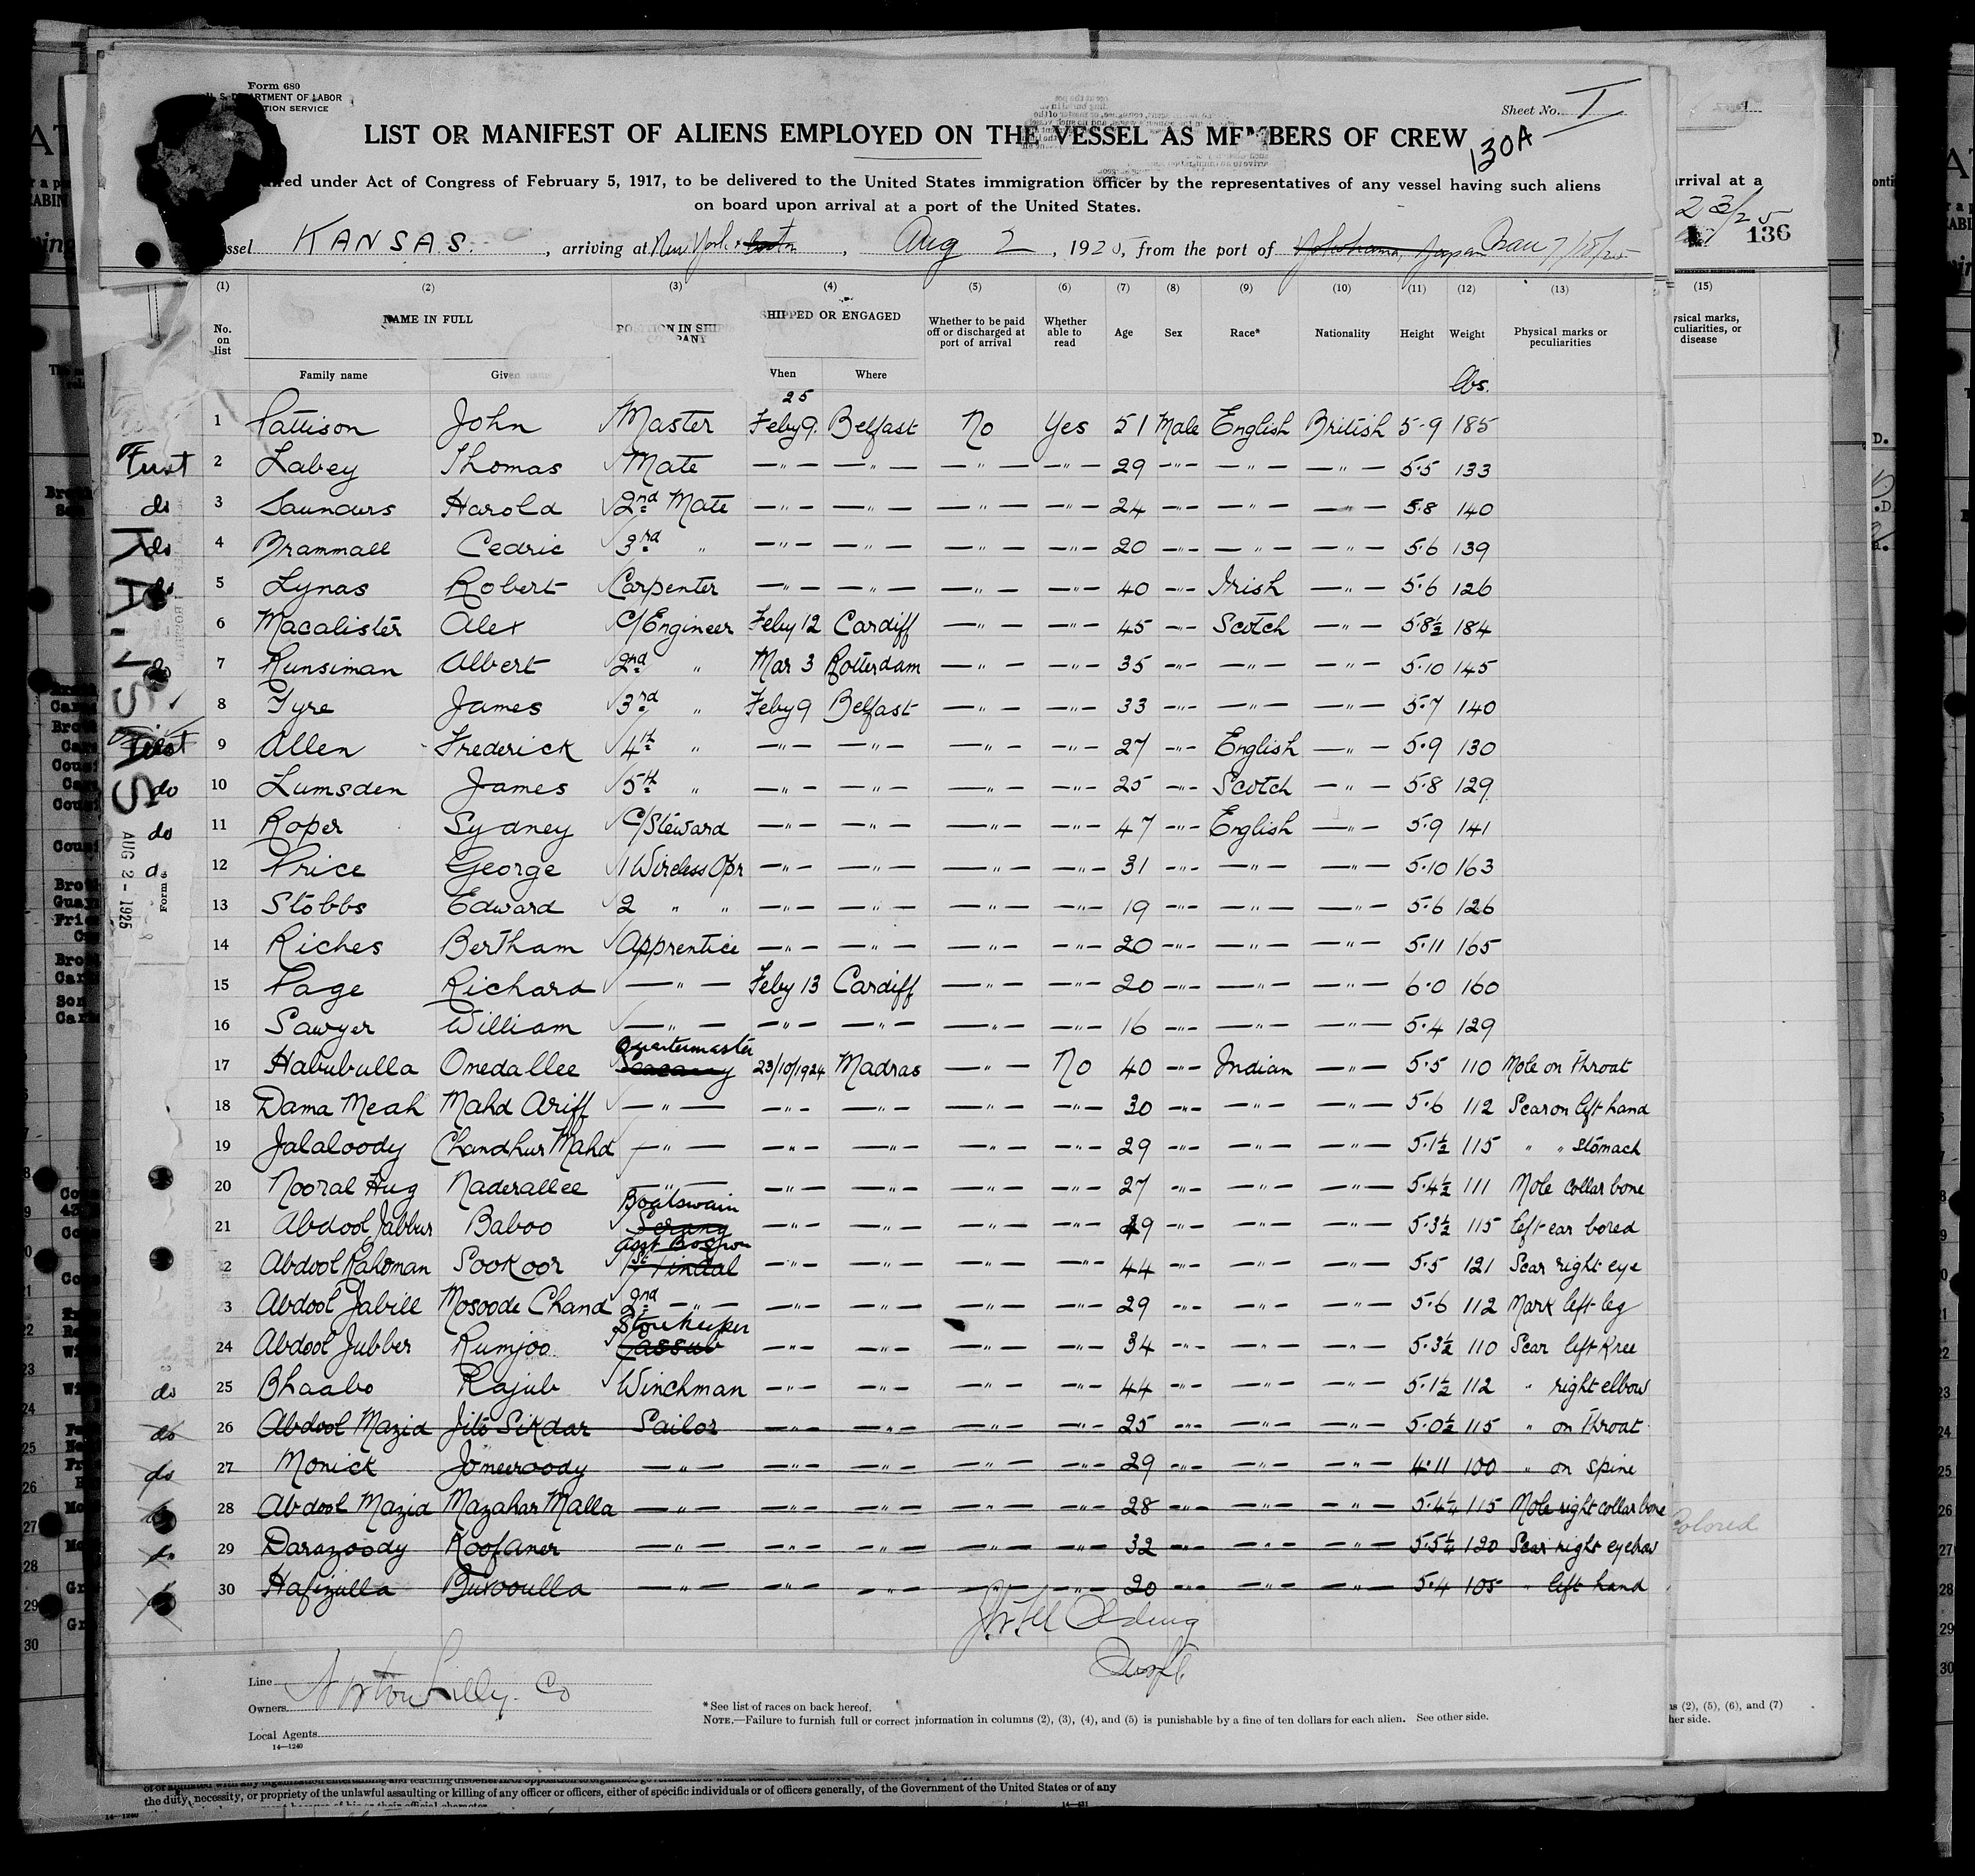 Form 680
U. S. DEPARTMENT OF LABOR
IMMIGRATION SERVICE
Sheet No. I
LIST OR MANIFEST OF ALIENS EMPLOYED ON THE VESSEL AS MEMBERS OF CREW
130A
under Act of Congress of February 5, 1917, to be delivered to the United States immigration officer by the representatives of any vessel having such aliens
on board upon arrival at a port of the United States.
KANSAS, arriving at New York & Boston, Aug 2, 1925, from the port of Yokohama, Japan 7/18/25
136
(1) (2) (3) (4) (5) (6) (7) (8) (9) (10) (11) (12) (13)
No. on list
NAME IN FULL
POSITION IN SHIP'S COMPANY
SHIPPED OR ENGAGED
Whether to be paid off or discharged at port of arrival
Whether able to read
Age
Sex
Race*
Nationality
Height
Weight
Physical marks or peculiarities
Family name Given name When Where
lbs.
25
1 Pattison John Master Feby 9. Belfast No Yes 51 Male English British 5-9 185
First 2 Labey Thomas Mate — " — — " — — " — — " — 29 — " — — " — — " — 5.5 133
do 3 Saunders Harold 2nd Mate — " — — " — — " — — " — 24 — " — — " — — " — 5.8 140
do 4 Brammall Cedric 3rd " — " — — " — — " — — " — 20 — " — — " — — " — 5.6 139
5 Lynas Robert Carpenter — " — — " — — " — — " — 40 — " — Irish — " — 5.6 126
6 Macalister Alex C/Engineer Feby 12 Cardiff — " — — " — 45 — " — Scotch — " — 5.8½ 184
7 Runsiman Albert 2nd " Mar 3 Rotterdam — " — — " — 35 — " — — " — — " — 5.10 145
8 Tyre James 3rd " Feby 9 Belfast — " — — " — 33 — " — — " — — " — 5.7 140
9 Allen Frederick 4th " — " — — " — — " — — " — 27 — " — English — " — 5.9 130
do 10 Lumsden James 5th " — " — — " — — " — — " — 25 — " — Scotch — " — 5.8 129
do 11 Roper Sydney C/Steward — " — — " — — " — — " — 47 — " — English — " — 5.9 141
12 Price George 1 Wireless Opr — " — — " — — " — — " — 31 — " — — " — — " — 5.10 163
13 Stobbs Edward 2 " " — " — — " — — " — — " — 19 — " — — " — — " — 5.6 126
14 Riches Bertham Apprentice — " — — " — — " — — " — 20 — " — — " — — " — 5.11 165
15 Page Richard — " — Feby 13 Cardiff — " — — " — 20 — " — — " — — " — 6.0 160
16 Sawyer William — " — — " — — " — — " — — " — 16 — " — — " — — " — 5.4 129
Quartermaster
17 Habubulla Onedallee Seacunny 23/10/1924 Madras — " — No 40 — " — Indian — " — 5.5 110 Mole on throat
18 Dama Meah Mahd Ariff — " — — " — — " — — " — — " — 30 — " — — " — — " — 5.6 112 Scar on left hand
19 Jalaloody Chandhur Mahd — " — — " — — " — — " — — " — 29 — " — — " — — " — 5.1½ 115 " " Stomach
20 Nooral Hug Naderallee — " — — " — — " — — " — — " — 27 — " — — " — — " — 5.4½ 111 Mole Collar bone
Boatswain
21 Abdool Jabbur Baboo Serang — " — — " — — " — — " — 49 — " — — " — — " — 5.3½ 115 left ear bored
Asst Bosswn
2 Abdool Rahoman Sookoor 1st Tindal — " — — " — — " — — " — 44 — " — — " — — " — 5.5 121 Scar right eye
3 Abdool Jabill Mosoode Chand 2nd — " — — " — — " — — " — — " — 29 — " — — " — — " — 5.6 112 Mark left leg
Storekeeper
24 Abdool Jubber Rumjoo Cassub — " — — " — — " — — " — 34 — " — — " — — " — 5.3½ 110 Scar left Knee
do 25 Bhaabo Rajub Winchman — " — — " — — " — — " — 44 — " — — " — — " — 5.1½ 112 " right elbow
do 26 Abdool Mazid Jito Sikdar Sailor — " — — " — — " — — " — 25 — " — — " — — " — 5.0½ 115 " on throat
do 27 Monick Jomeeroody — " — — " — — " — — " — — " — 29 — " — — " — — " — 4.11 100 " on spine
28 Abdool Mazid Mazahar Malla — " — — " — — " — — " — — " — 28 — " — — " — — " — 5.4¼ 115 Mole right collar bone
29 Darazoody Koofaner — " — — " — — " — — " — — " — 32 — " — — " — — " — 5.5¼ 120 Scar right eyebrow
30 Hafizulla — " — — " — — " — — " — — " — 20 — " — — " — — " — 5.4 105 " left hand
KANSAS
AUG 2 - 1925
Line
Norton Lilly Co
Owners
Local Agents
14—1240
* See list of races on back hereof.
NOTE.—Failure to furnish full or correct information in columns (2), (3), (4), and (5) is punishable by a fine of ten dollars for each alien. See other side.
arrival at a
(15)
disease
Colored
(2), (5), (6), and (7)
her side.
the duty, necessity, or propriety of the unlawful assaulting or killing of any officer or officers, either of specific individuals or of officers generally, of the Government of the United States or of any